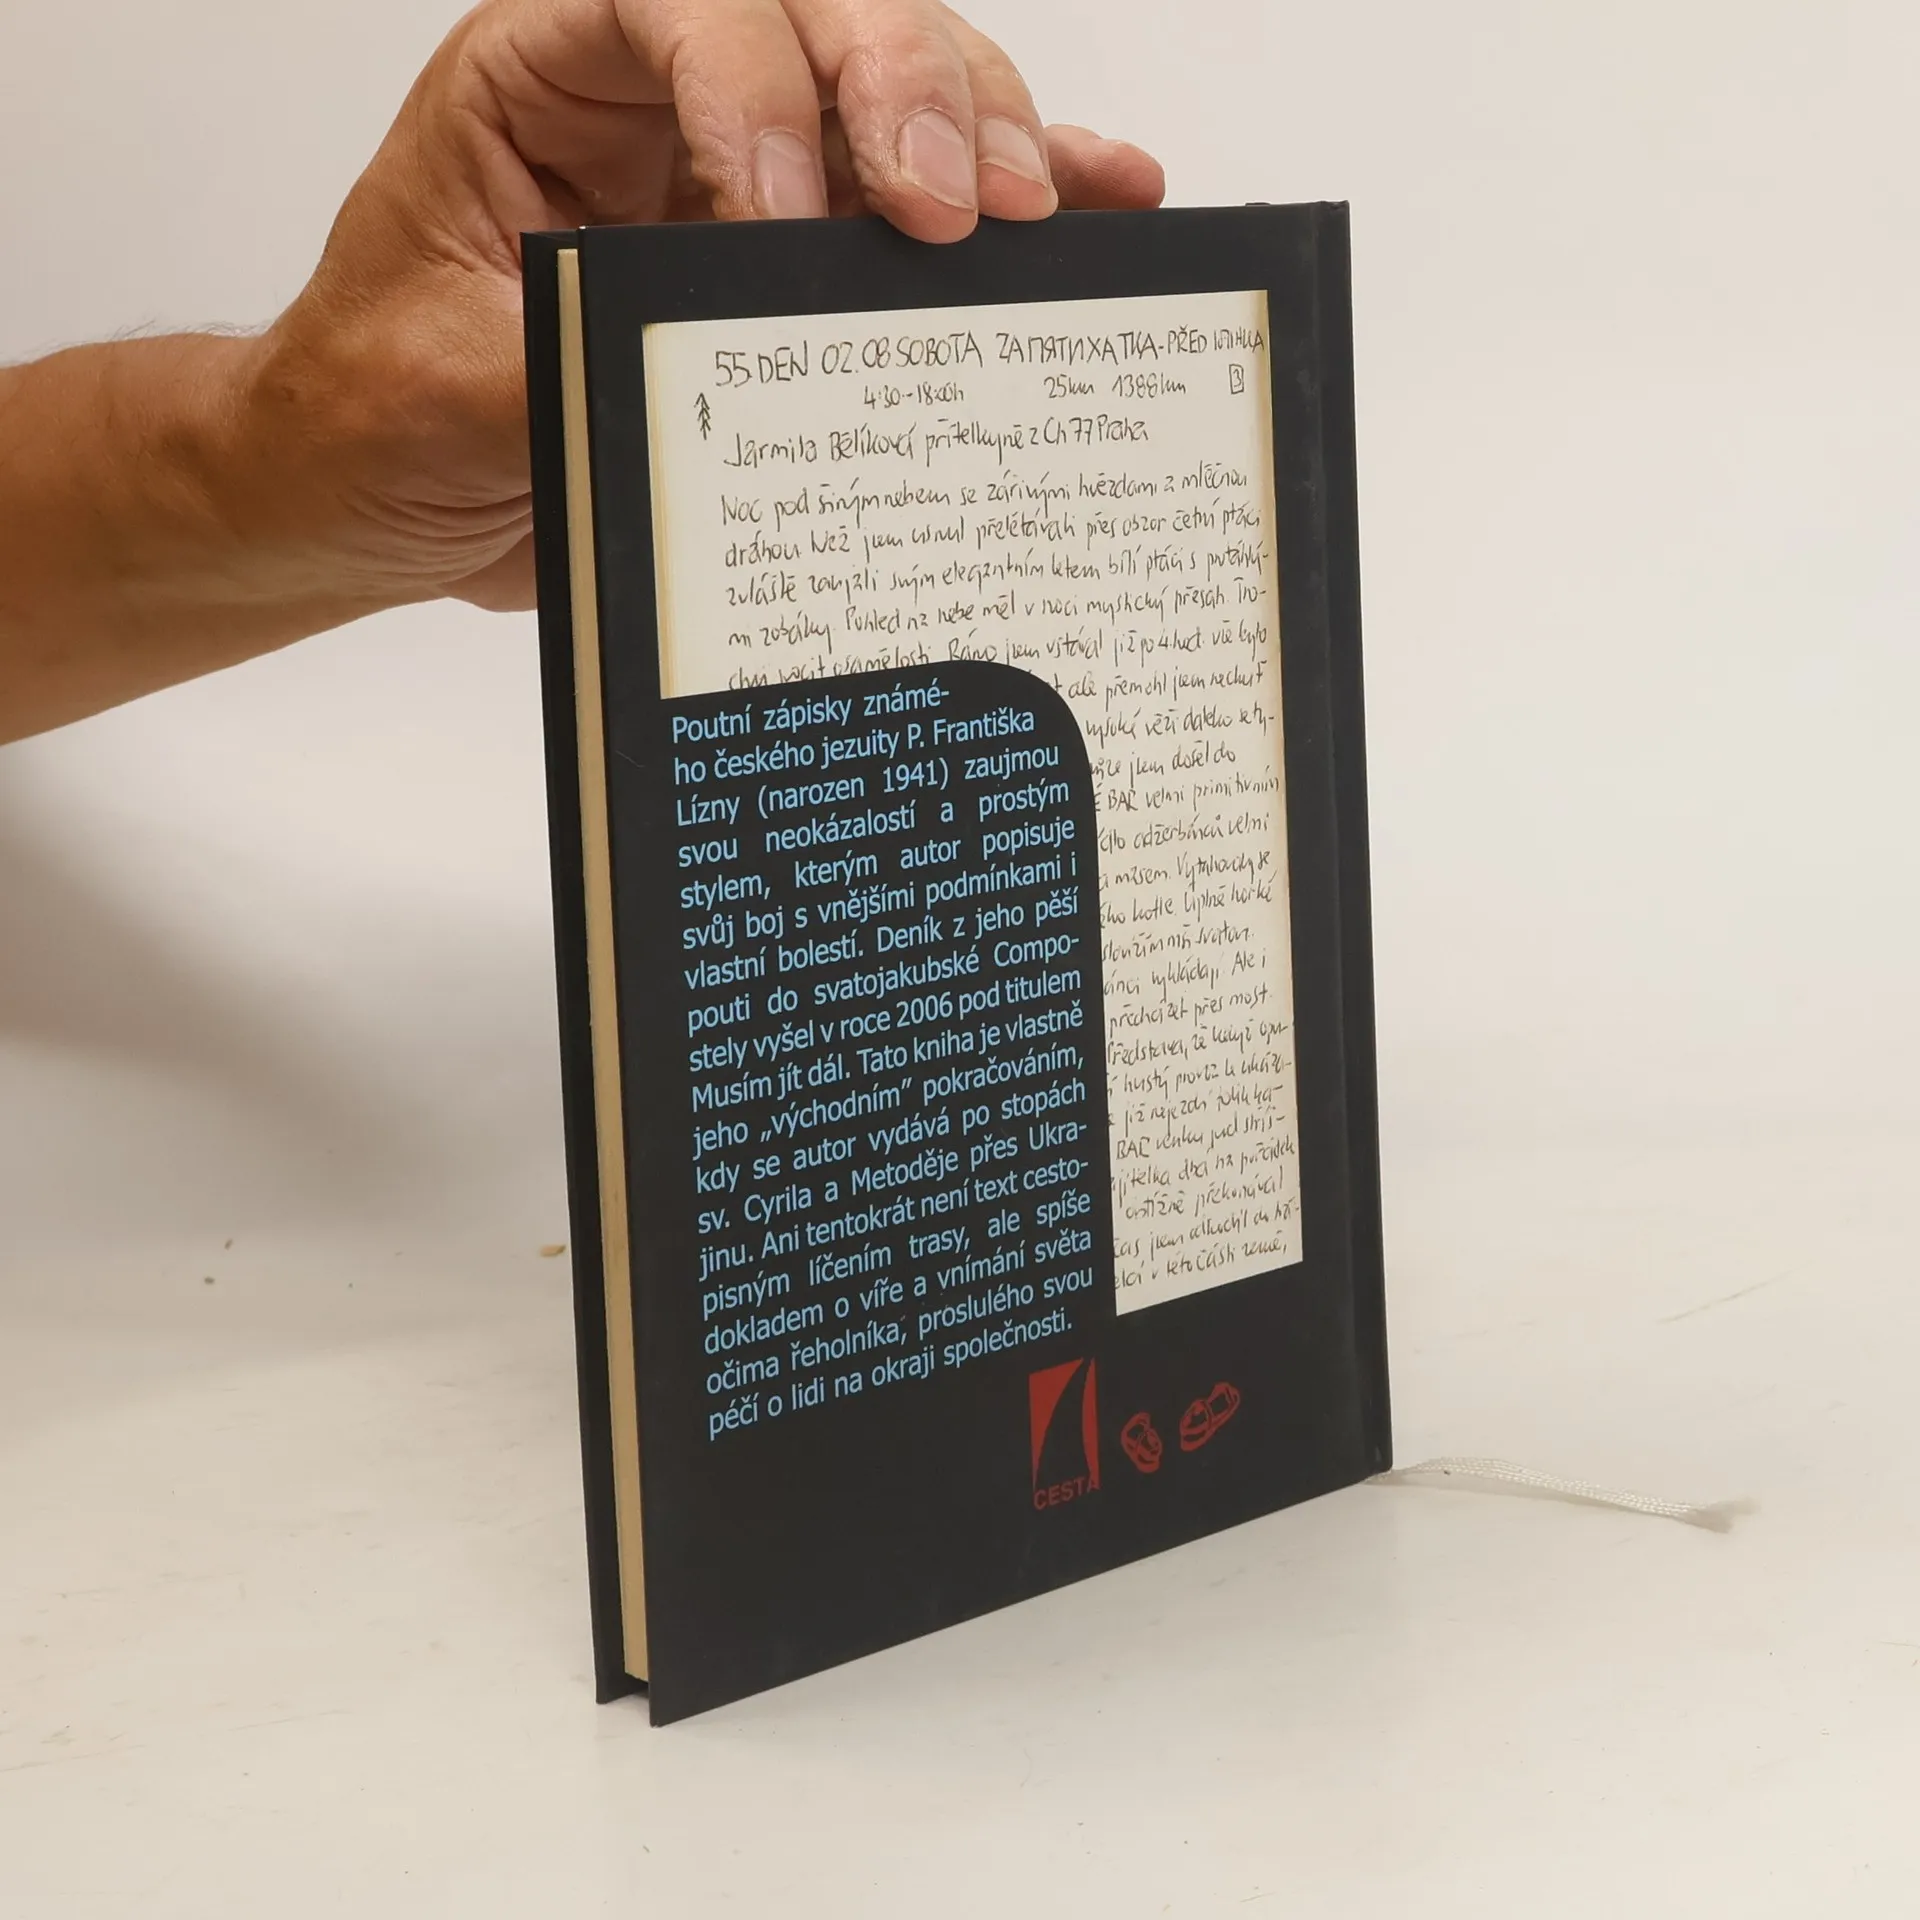 55. DEN 02.08 SOBOTA ZA ПЯТИХАТКА - PŘED
4:30 - 18:00h 25km 1388km 3
Jarmila Bělíková přítelkyně z Ch 77 Praha
Noc pod širým nebem se zářivými hvězdami a mléčnou
dráhou. Než jsem usnul přelétávali přes obzor četní ptáci
zvláště zaujali svým elegantním letem bílí ptáci s
mi zobáky. Pohled na nebe měl v noci mystický přesah. Tro-
chu pocit osamělosti. Ráno jsem vstával již po 4. hod. vše bylo
ale přemohl jsem nechuť
vysoké věži daleko
jsem došel do
BAR velmi primitivním
velmi
masem. Vytahovaly se
kotle. Úplně horké
sloužím mši svatou.
vykládají. Ale i
přecházet přes most.
Představa, že když opu-
hustý provoz
již nejezdí tolik
BAR venku pod
dbá na pořádek
překonával
jsem
v této části země,
Poutní zápisky známé-
ho českého jezuity P. Františka
Lízny (narozen 1941) zaujmou
svou neokázalostí a prostým
stylem, kterým autor popisuje
svůj boj s vnějšími podmínkami i
vlastní bolestí. Deník z jeho pěší
pouti do svatojakubské Compo-
stely vyšel v roce 2006 pod titulem
Musím jít dál. Tato kniha je vlastně
jeho „východním" pokračováním,
kdy se autor vydává po stopách
sv. Cyrila a Metoděje přes Ukra-
jinu. Ani tentokrát není text cesto-
pisným líčením trasy, ale spíše
dokladem o víře a vnímání světa
očima řeholníka, proslulého svou
péčí o lidi na okraji společnosti.
CESTA